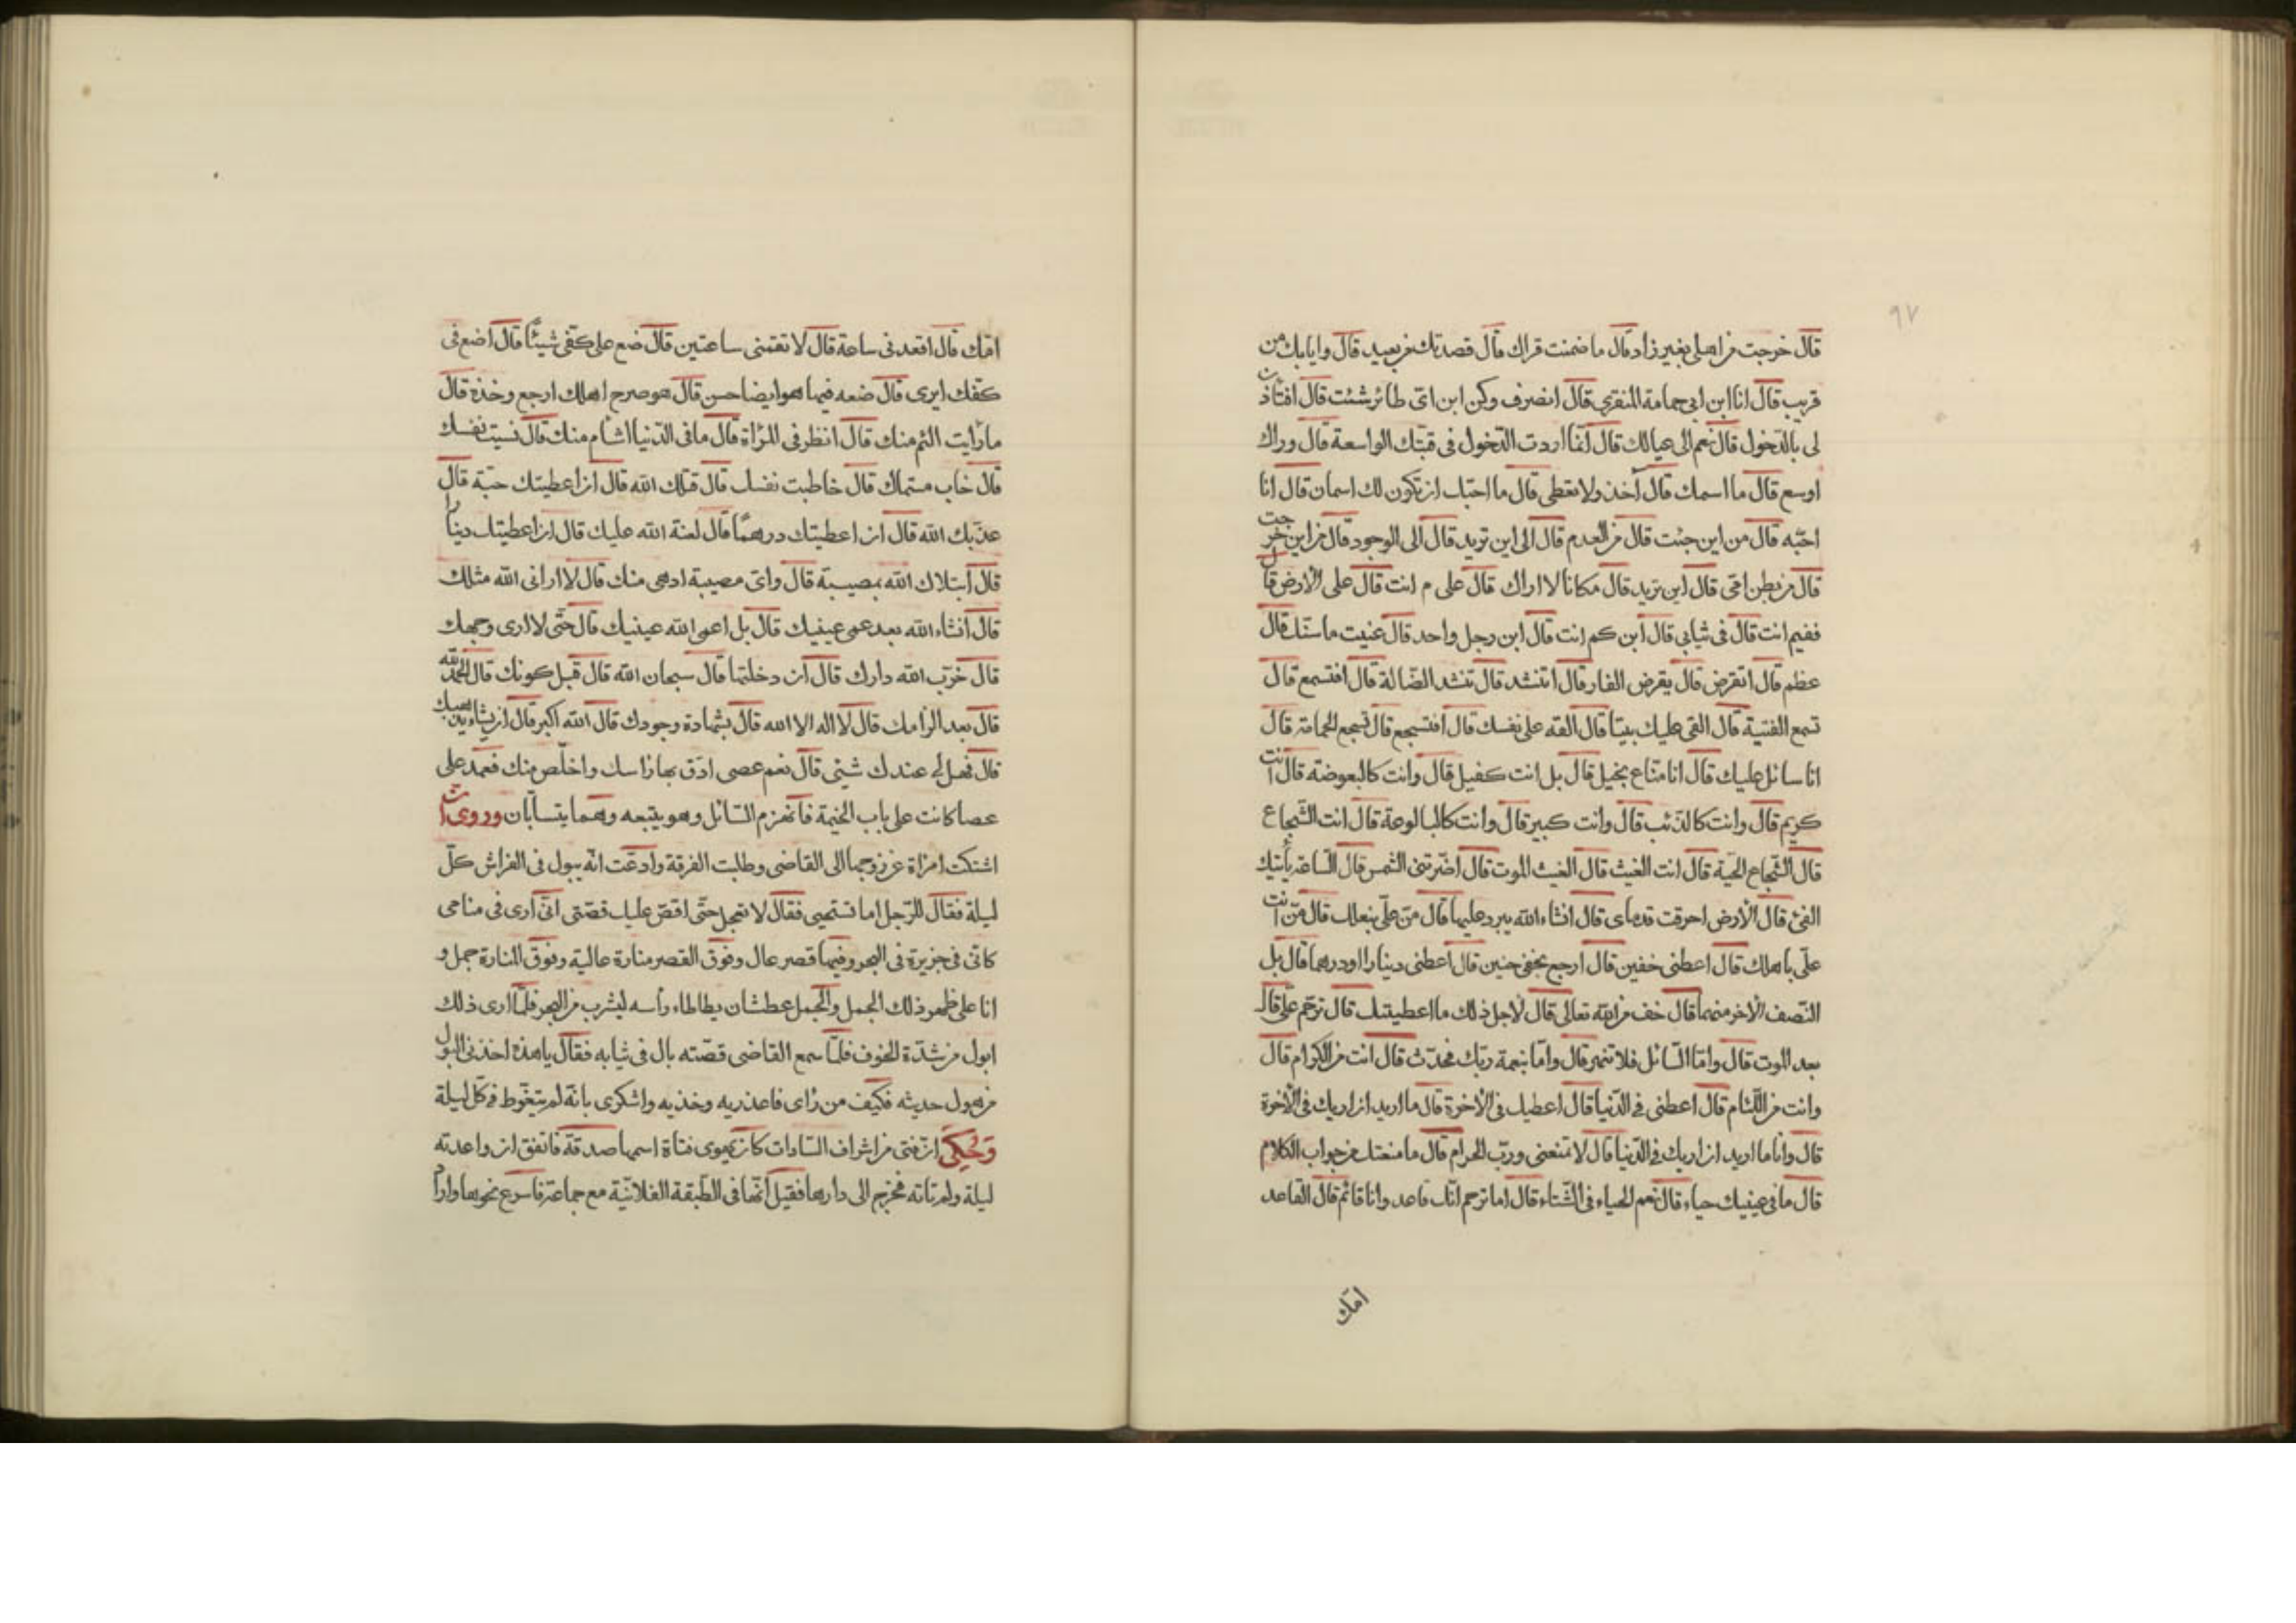 ٩٧
قال خرجت من اهلى بغير زاد قال ما ضمنت قراك قال قصدتك من بعيد قال وايابك من
قريب قال انا ابن ابى حمامة المنقرى قال انصرف وكن ابن اىّ طائر شئت قال افتأذن
لى بالدّخول قال نعم الى عيالك قال انّما اردت الدّخول فى قبّتك الواسعة قال وراك
اوسع قال ما اسمك قال آخذ ولا نعطى قال ما احبّ ان تكون لك اسمان قال انا
احبّه قال من اين جئت قال من العدم قال الى اين تريد قال الى الوجود قال من اين خرجت
قال من بطن امّى قال اين تريد قال مكانا لا اراك قال على م انت قال على الأرض قال
ففيم انت قال فى ثيابى قال ابن كم انت قال ابن رجل واحد قال عنيت ما سنّك قال
عظم قال اتقرض قال يقرض الفار قال اتنشد قال تنشد الضّالة قال افتسمع قال
تسمع القنية قال القى عليك بيتا قال القه على نفسك قال افتسجع قال تسجع الحمامة قال
انا سائل عليك قال انا متاع بخيل قال بل انت كفيل قال وانت كالبعوضة قال انت
كريم قال وانت كالذئب قال وانت كبير قال وانت كالبالوعة قال انت الشّجاع
قال الشّجاع الحيّة قال انت الغيث قال الغيث الموت قال اضرّتنى الشمس قال السّاعة يأتيك
الفئ قال الأرض احرقت قدماى قال انشاء الله يبرد عليهما قال منّ علىّ بنعلك قال منّ انت
علىّ باهلك قال اعطنى خفين قال ارجع بخفى حنين قال اعطنى دينارا او درهما قال بل
النّصف الآخر منهما قال خف من الله تعالى قال لأجل ذلك ما اعطيتك قال ترحّم علىّ قال
بعد الموت قال وامّا السّائل فلا تنهر قال وامّا بنعمة ربّك فحدّث قال انت من الكرام قال
وانت من اللّئام قال اعطنى فى الدّنيا قال اعطيك فى الآخرة قال ما اريد ان اريك فى الآخرة
قال وانا ما اريد ان اريك فى الدّنيا قال لا تمنعنى وربّ الحرام قال ما منعتك من جواب الكلام
قال ما فى عينيك حياء قال نعم الحياء فى الشّتاء قال اما ترحم انّك قاعد وانا قائم قال القاعد
امّك
امّك قال اقعدنى ساعة قال لا تقمنى ساعتين قال ضع على كفّى شيئًا قال اضع فى
كفّك ايرى قال ضعه فيما هو ايضا حسن قال هو صرح اهلك ارجع وخذه قال
ما رأيت الئم منك قال انظر فى المرأة قال ما فى الدّنيا اشأم منك قال نسيت نفسك
قال خاب مسّاك قال خاطبت نفسك قال قتلك الله قال ان اعطيتك حبّة قال
عذّبك الله قال ان اعطيتك درهمًا قال لعنة الله عليك قال ان اعطيتك دينارا
قال ابتلاك الله بمصيبة قال واىّ مصيبة ادهى منك قال لا ارانى الله مثلك
قال انشاء الله بعد عمى عينيك قال بل اعمى الله عينيك قال حتّى لا ارى وجهك
قال خرّب الله دارك قال ان دخلتها قال سبحان الله قال قبل كونك قال الحمد لله
قال بعد الزامك قال لا اله الا الله قال بشهادة وجودك قال الله اكبر قال ان يشاء يذهبك
قال فهل لى عندك شيئ قال نعم عصى ادق بها راسك واخلّص منك فعمد على
عصا كانت على باب الخيمة فانهزم السّائل وهو يتبعه وهما يتسابّان وروى انّ
اشتكت امرأة عن زوجها الى القاضى وطلبت الفرقة وادعت انّه يبول فى الفراش كلّ
ليلة فقال للرّجل اما تستحيى فقال لا تعجل حتّى اقصّ عليك قصّتى انّى ارى فى منامى
كانّى فى جزيرة فى البحر وفيها قصر عال وفوق القصر منارة عالية وفوق المنارة جمل و
انا على ظهر ذلك الجمل والجمل عطشان يطاطاء رأسه ليشرب من البحر فلمّا ارى ذلك
ابول من شدّة الخوف فلمّا سمع القاضى قصّته بال فى ثيابه فقال يا هذه اخذنى البول
من هول حديثه فكيف من رأى فاعذريه وخذيه واشكرى بانّه لم يتغوّط فى كلّ ليلة
وحكى انّ فتى من اشراف السّادات كان يهوى فتاة اسمها صدقة فاتفق ان واعدته
ليلة ولم تاته فخرج الى دارها فقيل انّها فى الطّبقة الفلانيّة مع جماعة فاسرع نحوها واراد